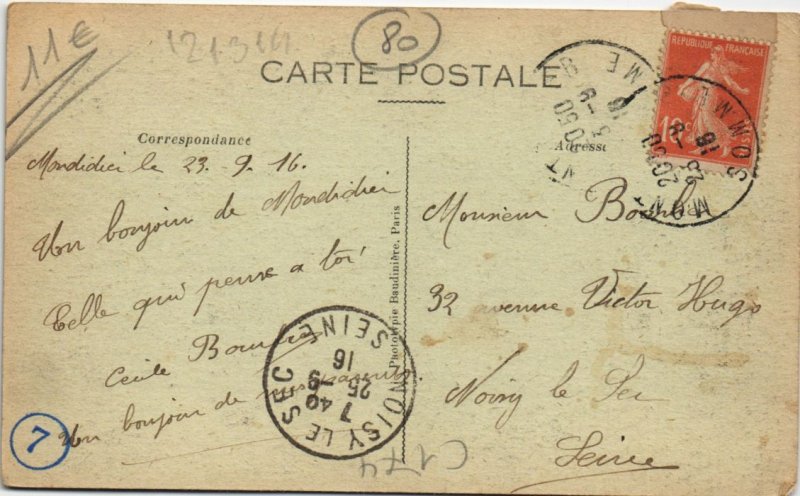 11€
121314
80
CARTE POSTALE
Correspondance
Adresse
Mondidier le 23. 9. 16.
Un bonjour de Mondidier
Celle qui pense a toi
Cecile
Un bonjour de mes parents
Monsieur
32 avenue Victor Hugo
Noisy le Sec
Seine
Phototypie Baudinière, Paris
REPUBLIQUE FRANÇAISE
10c
SOMME
20 50
23 - 9
16
NOISY LE SEC
SEINE
7 40
25 - 9
16
7
C174